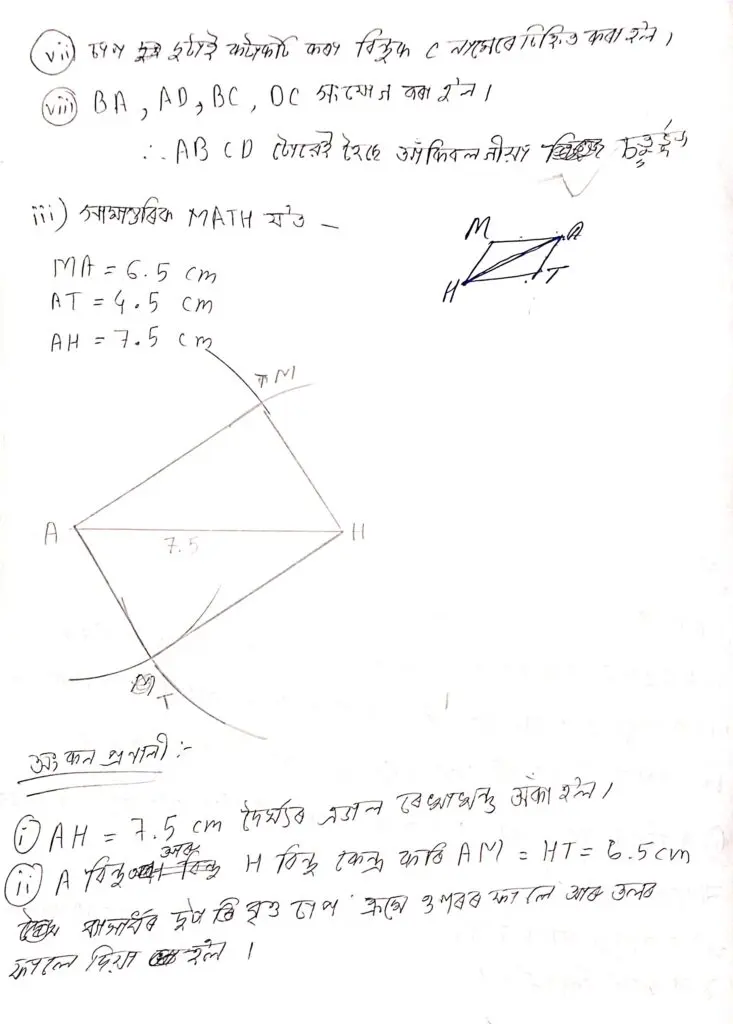 vii) চাপ দুটাই কটাকটি কৰা বিন্দুক C নামেৰে চিহ্নিত কৰা হ'ল।
viii) BA, AD, BC, DC সংযোগ কৰা হ'ল।
∴ ABCD টোৱেই হৈছে চতুৰ্ভুজ
iii) সামান্তৰিক MATH য'ত –
M A
H T
MA = 6.5 cm
AT = 4.5 cm
AH = 7.5 cm
M
A H
7.5
T
অংকন প্ৰণালী :-
i) AH = 7.5 cm দৈৰ্ঘ্যৰ এডাল ৰেখাখন্ড অঁকা হ'ল।
ii) A বিন্দু আৰু H বিন্দু কেন্দ্ৰ কৰি AM = HT = 6.5 cm
ব্যাসাৰ্ধৰ দুটা বৃত্ত চাপ ক্ৰমে ওপৰৰ ফালে আৰু তলৰ
ফালে দিয়া হ'ল।